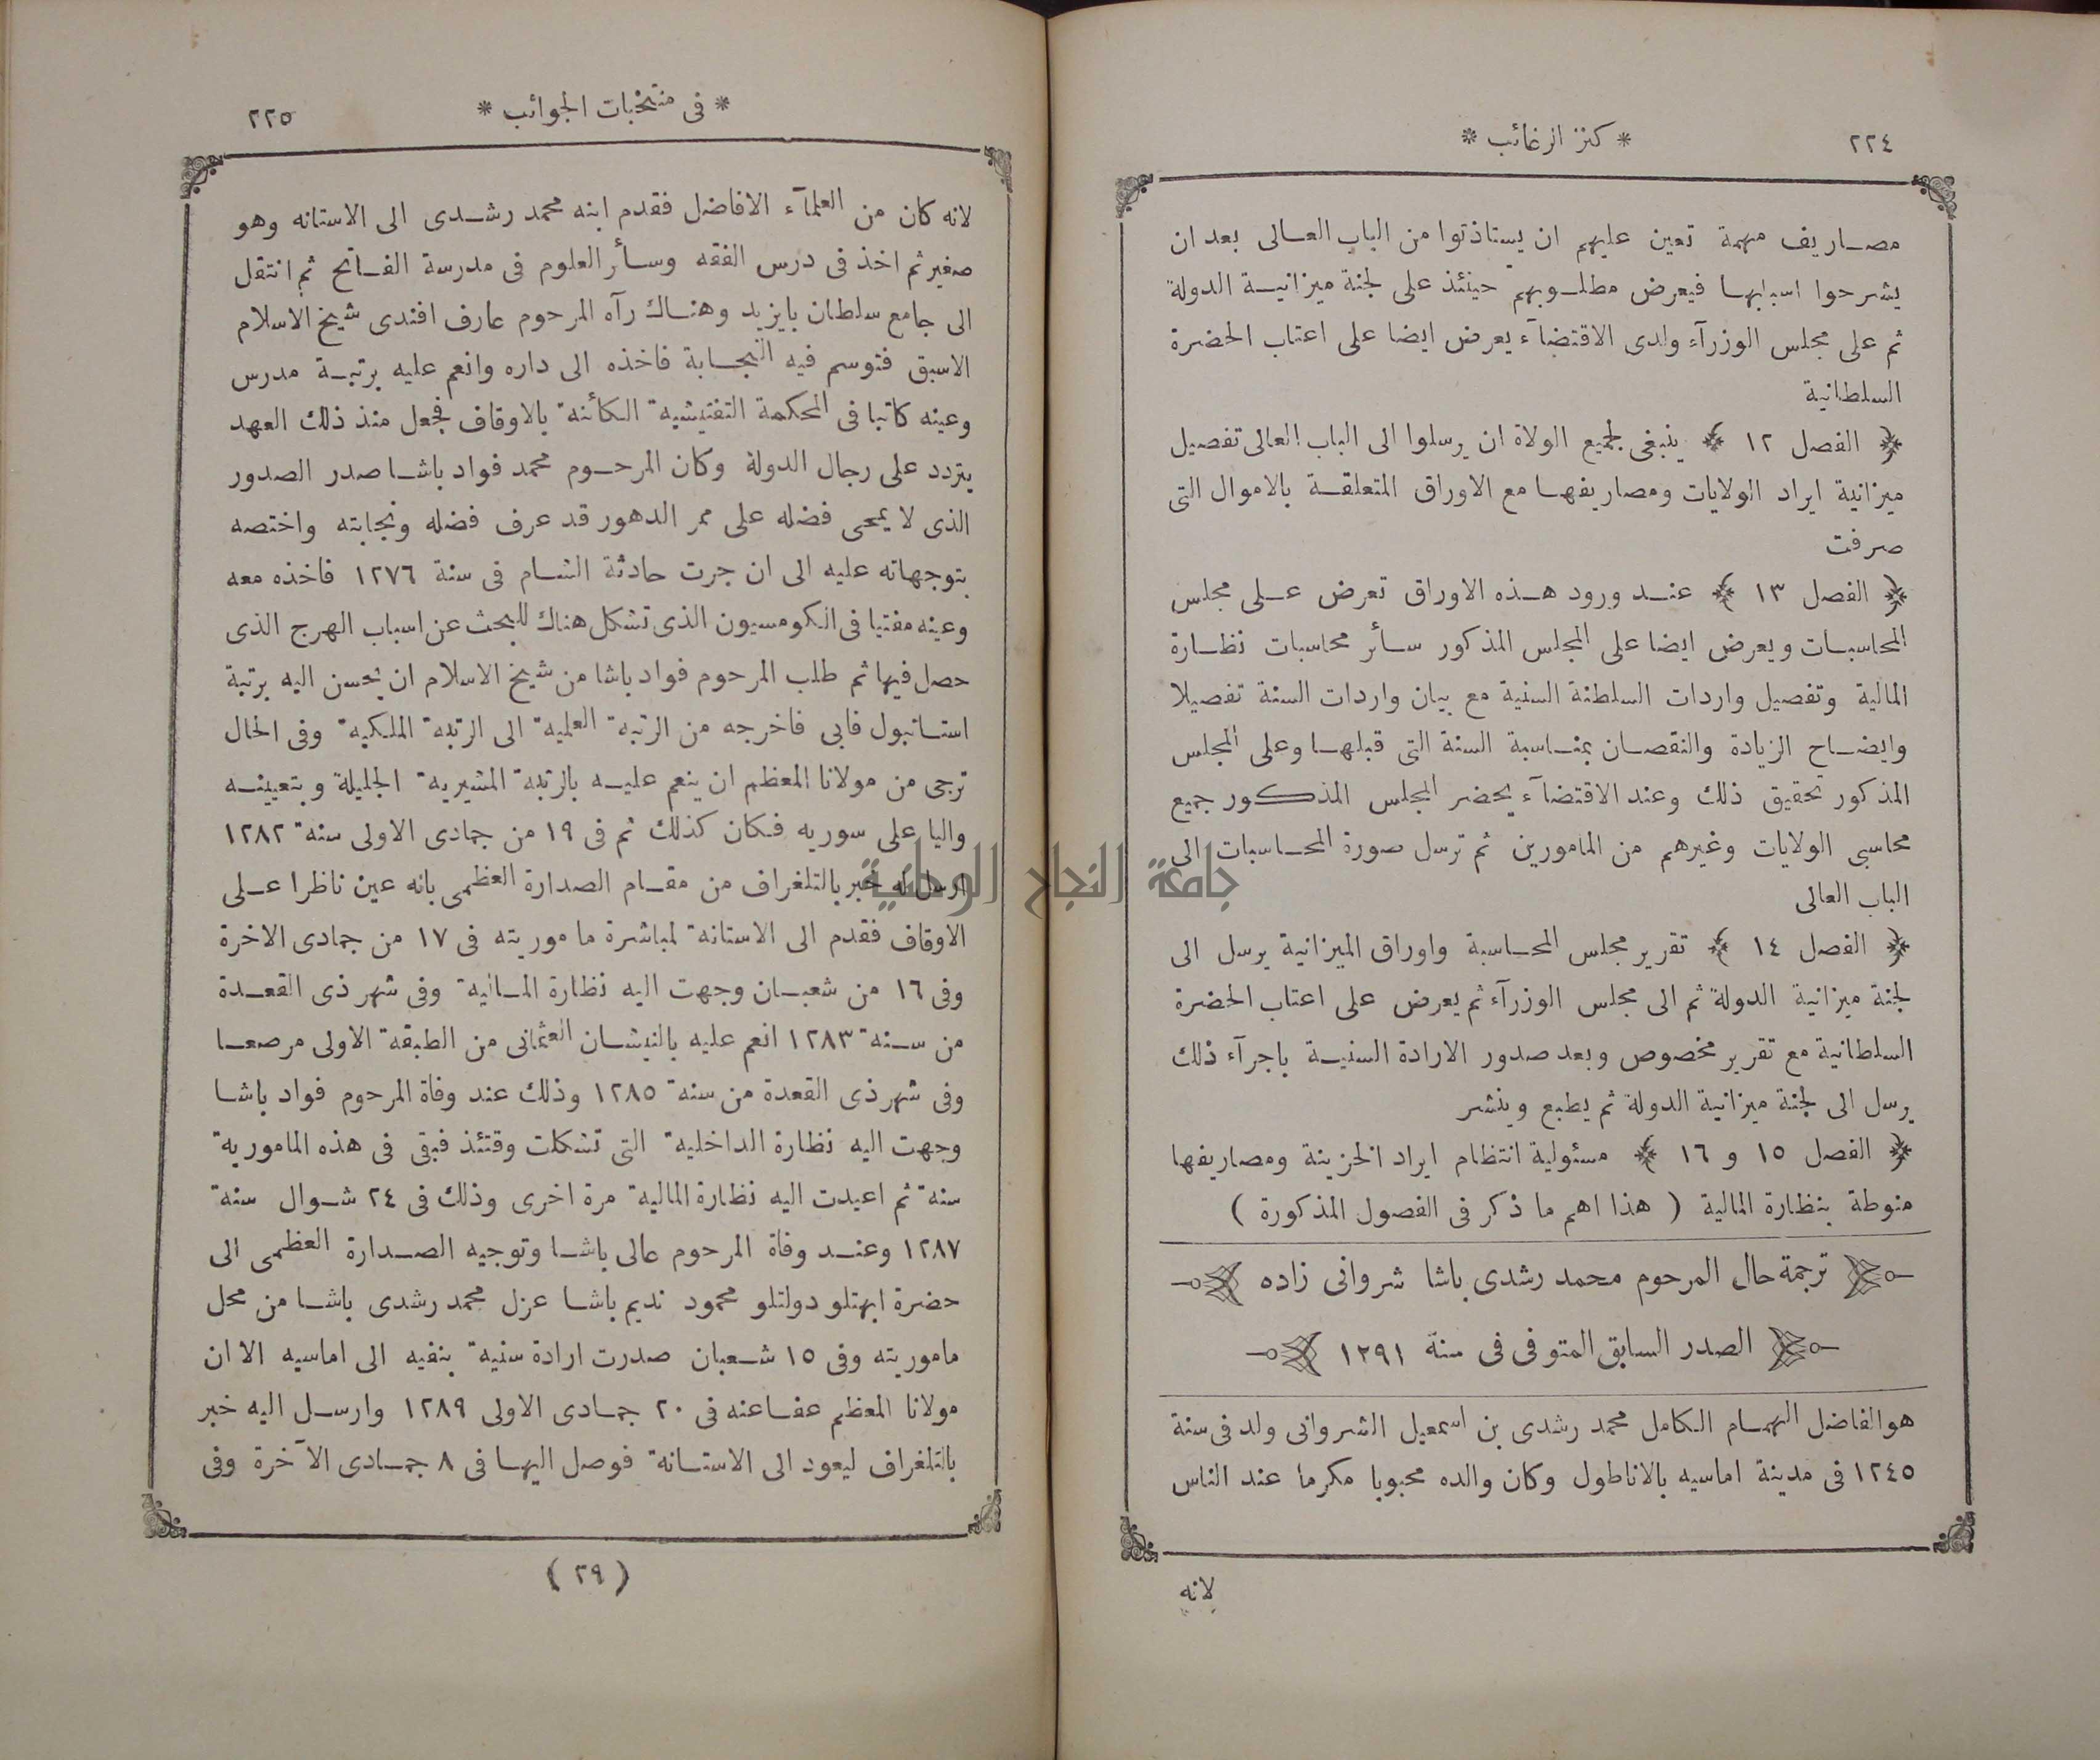 ٢٢٤
* كنز الرغائب *
مصاريف مهمة تعين عليهم ان يستاذنوا من الباب العالى بعد ان
يشرحوا اسبابها فيعرض مطلوبهم حينئذ على لجنة ميزانية الدولة
ثم على مجلس الوزرآء ولدى الاقتضآء يعرض ايضا على اعتاب الحضرة
السلطانية
﴿ الفصل ١٢ ﴾ ينبغى لجميع الولاة ان يرسلوا الى الباب العالى تفصيل
ميزانية ايراد الولايات ومصاريفها مع الاوراق المتعلقة بالاموال التى
صرفت
﴿ الفصل ١٣ ﴾ عند ورود هذه الاوراق تعرض على مجلس
المحاسبات ويعرض ايضا على المجلس المذكور سائر محاسبات نظارة
المالية وتفصيل واردات السلطنة السنية مع بيان واردات السنة تفصيلا
وايضاح الزيادة والنقصان بمناسبة السنة التى قبلها وعلى المجلس
المذكور تحقيق ذلك وعند الاقتضآء يحضر المجلس المذكور جميع
محاسبى الولايات وغيرهم من المأمورين ثم ترسل صورة المحاسبات الى
الباب العالى
﴿ الفصل ١٤ ﴾ تقرير مجلس المحاسبة واوراق الميزانية يرسل الى
لجنة ميزانية الدولة ثم الى مجلس الوزرآء ثم يعرض على اعتاب الحضرة
السلطانية مع تقرير مخصوص وبعد صدور الارادة السنية باجرآء ذلك
يرسل الى لجنة ميزانية الدولة ثم يطبع وينشر
﴿ الفصل ١٥ و ١٦ ﴾ مسئولية انتظام ايراد الخزينة ومصاريفها
منوطة بنظارة المالية ( هذا اهم ما ذكر فى الفصول المذكورة )
ترجمة حال المرحوم محمد رشدى باشا شروانى زاده
الصدر السابق المتوفى فى سنة ١٢٩١
هو الفاضل الهمام الكامل محمد رشدى بن اسمعيل الشروانى ولد فى سنة
١٢٤٥ فى مدينة اماسيه بالاناطول وكان والده محبوبا مكرما عند الناس
لانه
* فى منتخبات الجوائب *
٢٢٥
لانه كان من العلمآء الافاضل فقدم ابنه محمد رشدى الى الاستانه وهو
صغير ثم اخذ فى درس الفقه وسائر العلوم فى مدرسة الفاتح ثم انتقل
الى جامع سلطان بايزيد وهناك رآه المرحوم عارف افندى شيخ الاسلام
الاسبق فتوسم فيه النجابة فاخذه الى داره وانعم عليه برتبة مدرس
وعينه كاتبا فى المحكمة التفتيشية الكائنة بالاوقاف فجعل منذ ذلك العهد
يتردد على رجال الدولة وكان المرحوم محمد فواد باشا صدر الصدور
الذى لا يمحى فضله على ممر الدهور قد عرف فضله ونجابته واختصه
بتوجهاته عليه الى ان جرت حادثة الشام فى سنة ١٢٧٦ فاخذه معه
وعينه مفتيا فى الكومسيون الذى تشكل هناك للبحث عن اسباب الهرج الذى
حصل فيها ثم طلب المرحوم فواد باشا من شيخ الاسلام ان يحسن اليه برتبة
استانبول فابى فاخرجه من الرتبة العلمية الى الرتبة الملكية وفى الحال
ترجى من مولانا المعظم ان ينعم عليه بالرتبة المشيرية الجليلة وبتعيينه
واليا على سوريه فكان كذلك ثم فى ١٩ من جمادى الاولى سنة ١٢٨٢
ارسل له خبر بالتلغراف من مقام الصدارة العظمى بانه عين ناظرا على
الاوقاف فقدم الى الاستانة لمباشرة ماموريته فى ١٧ من جمادى الاخرة
وفى ١٦ من شعبان وجهت اليه نظارة المالية وفى شهر ذى القعدة
من سنة ١٢٨٣ انعم عليه بالنيشان العثمانى من الطبقة الاولى مرصعا
وفى شهر ذى القعدة من سنة ١٢٨٥ وذلك عند وفاة المرحوم فواد باشا
وجهت اليه نظارة الداخلية التى تشكلت وقتئذ فبقى فى هذه المامورية
سنة ثم اعيدت اليه نظارة المالية مرة اخرى وذلك فى ٢٤ شوال سنة
١٢٨٧ وعند وفاة المرحوم عالى باشا وتوجيه الصدارة العظمى الى
حضرة ابهتلو دولتلو محمود نديم باشا عزل محمد رشدى باشا من محل
ماموريته وفى ١٥ شعبان صدرت ارادة سنية بنفيه الى اماسيه الا ان
مولانا المعظم عفا عنه فى ٢٠ جمادى الاولى ١٢٨٩ وارسل اليه خبر
بالتلغراف ليعود الى الاستانة فوصل اليها فى ٨ جمادى الآخرة وفى
( ٢٩ )
جامعة النجاح الوطنية